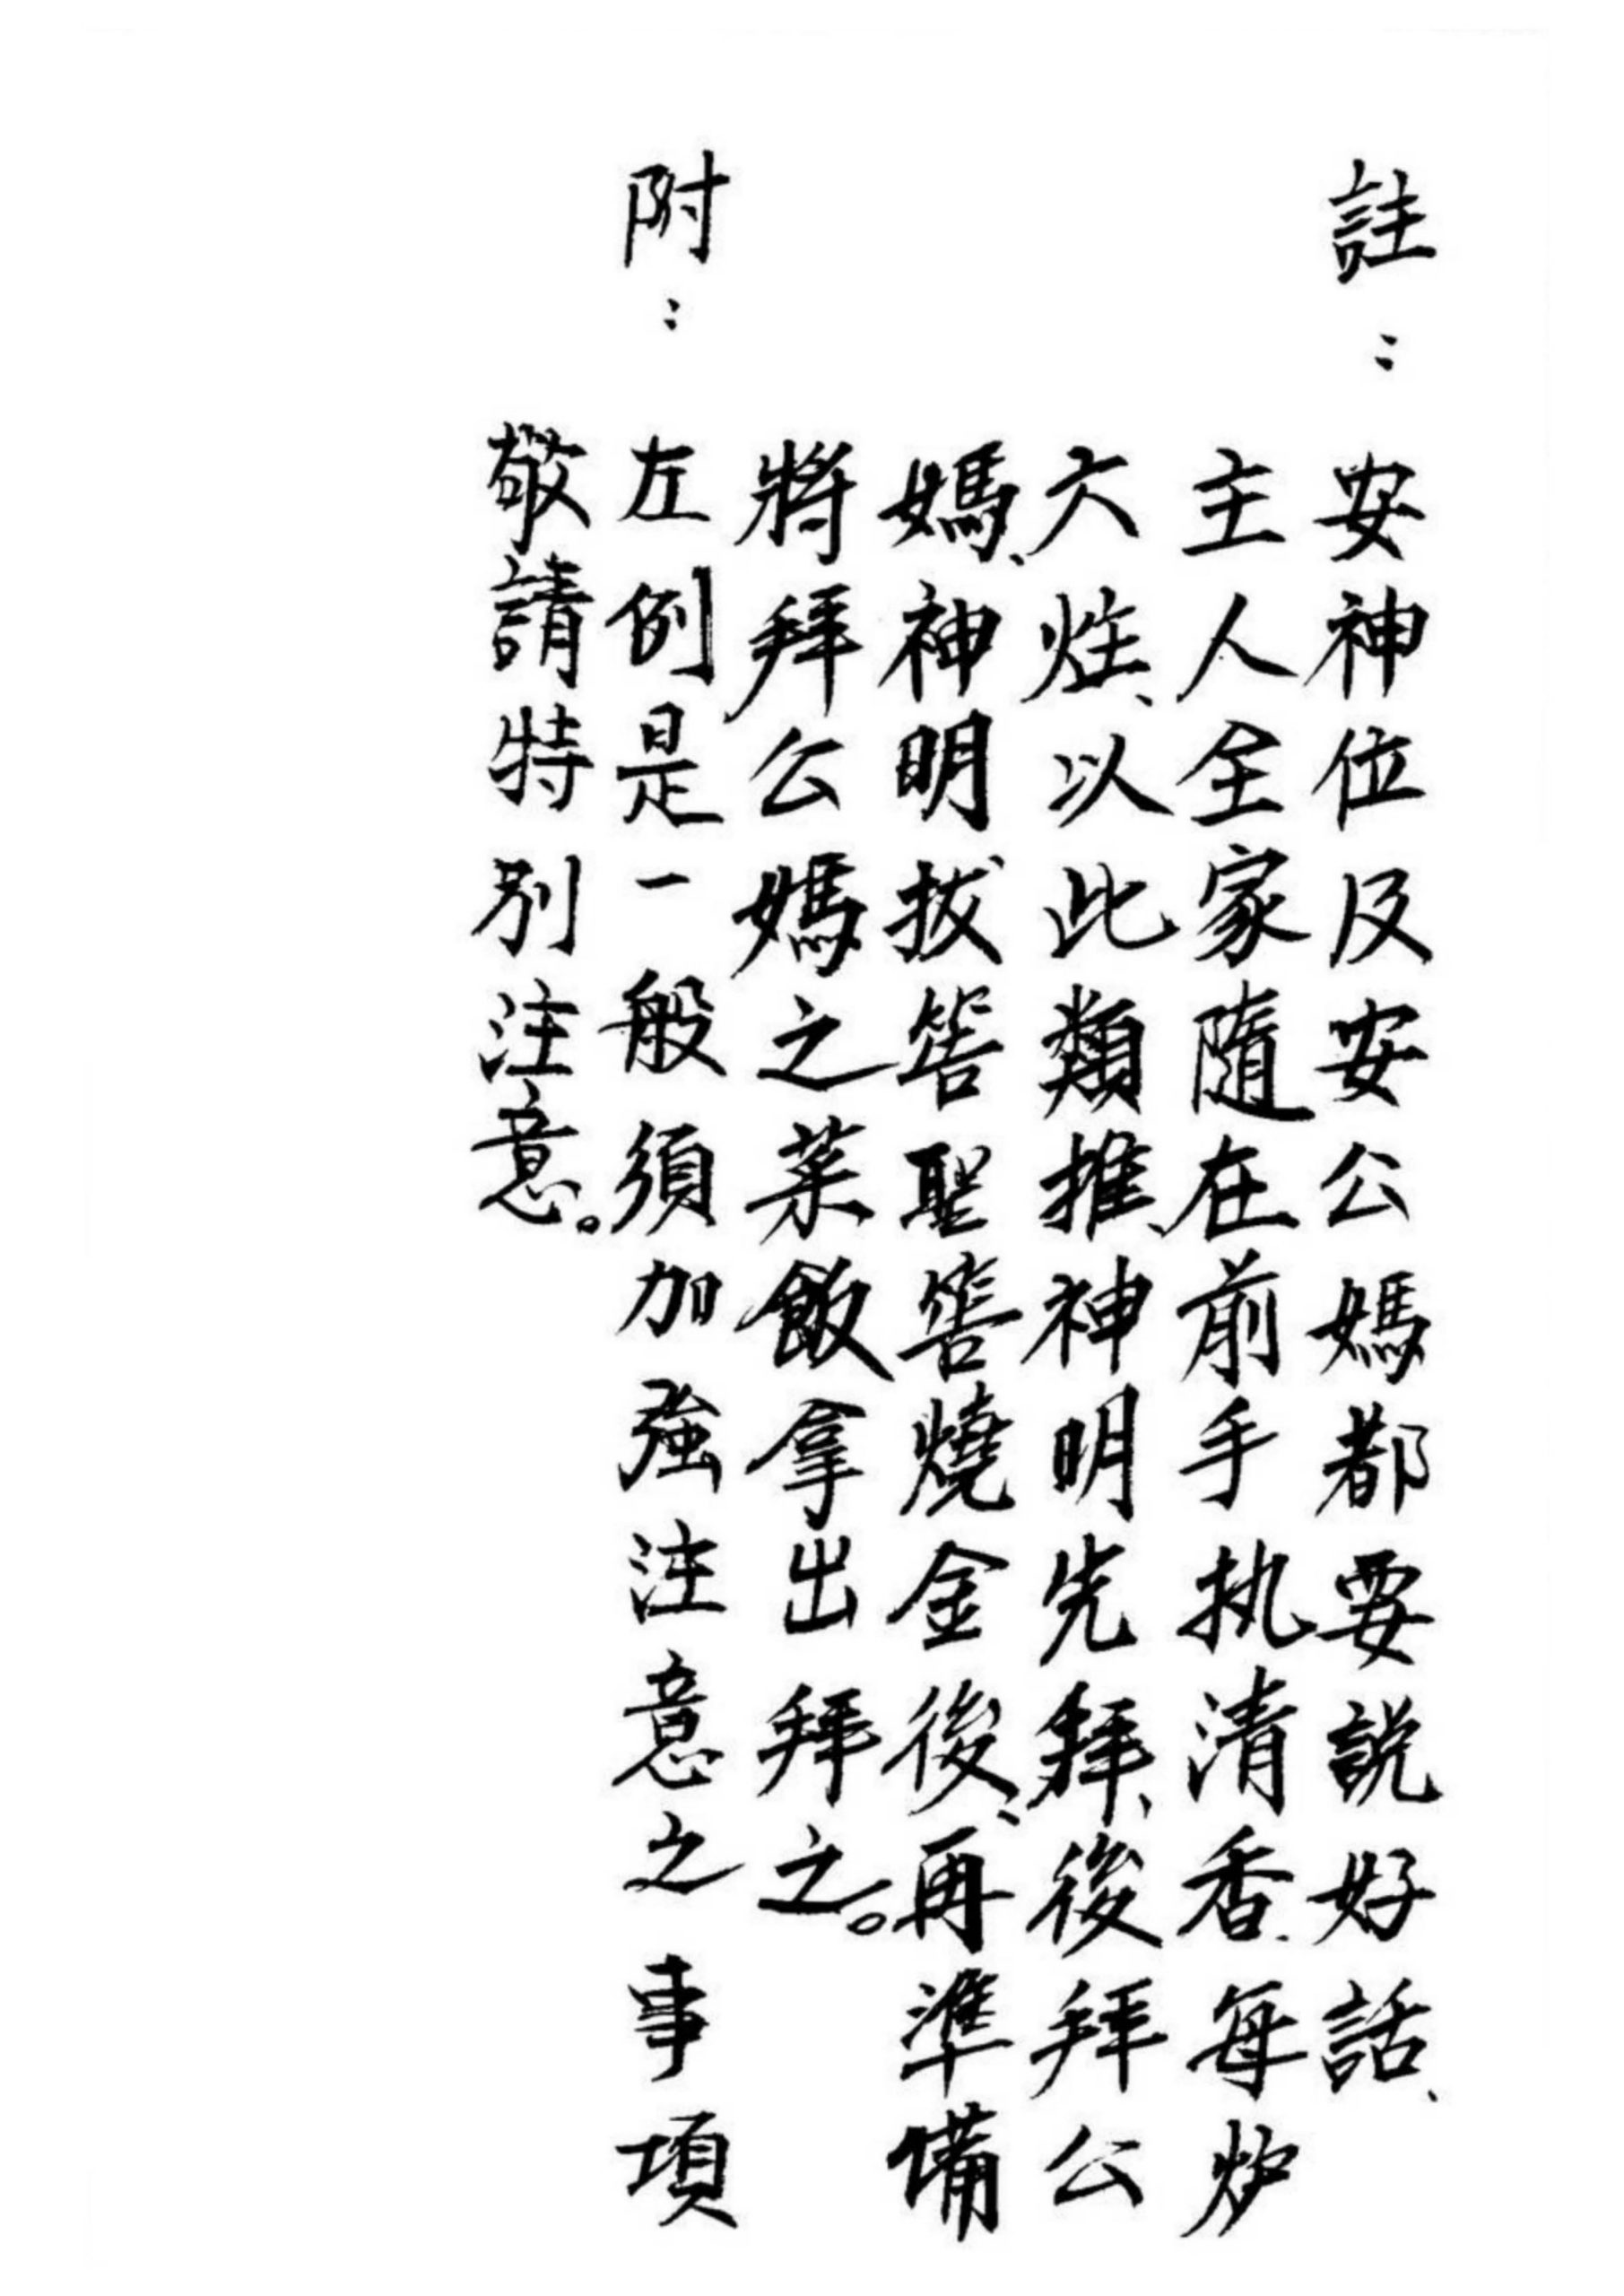 註：安神位及安公媽都要説好話、
主人全家隨在前手执清香、每炉
六炷、以此類推、神明先拜、後拜公
媽、神明拔筶聖筶燒金後、再準備
將拜公媽之菜飯拿出拜之。
附：左例是一般須加強注意之事項
敬請特別注意。